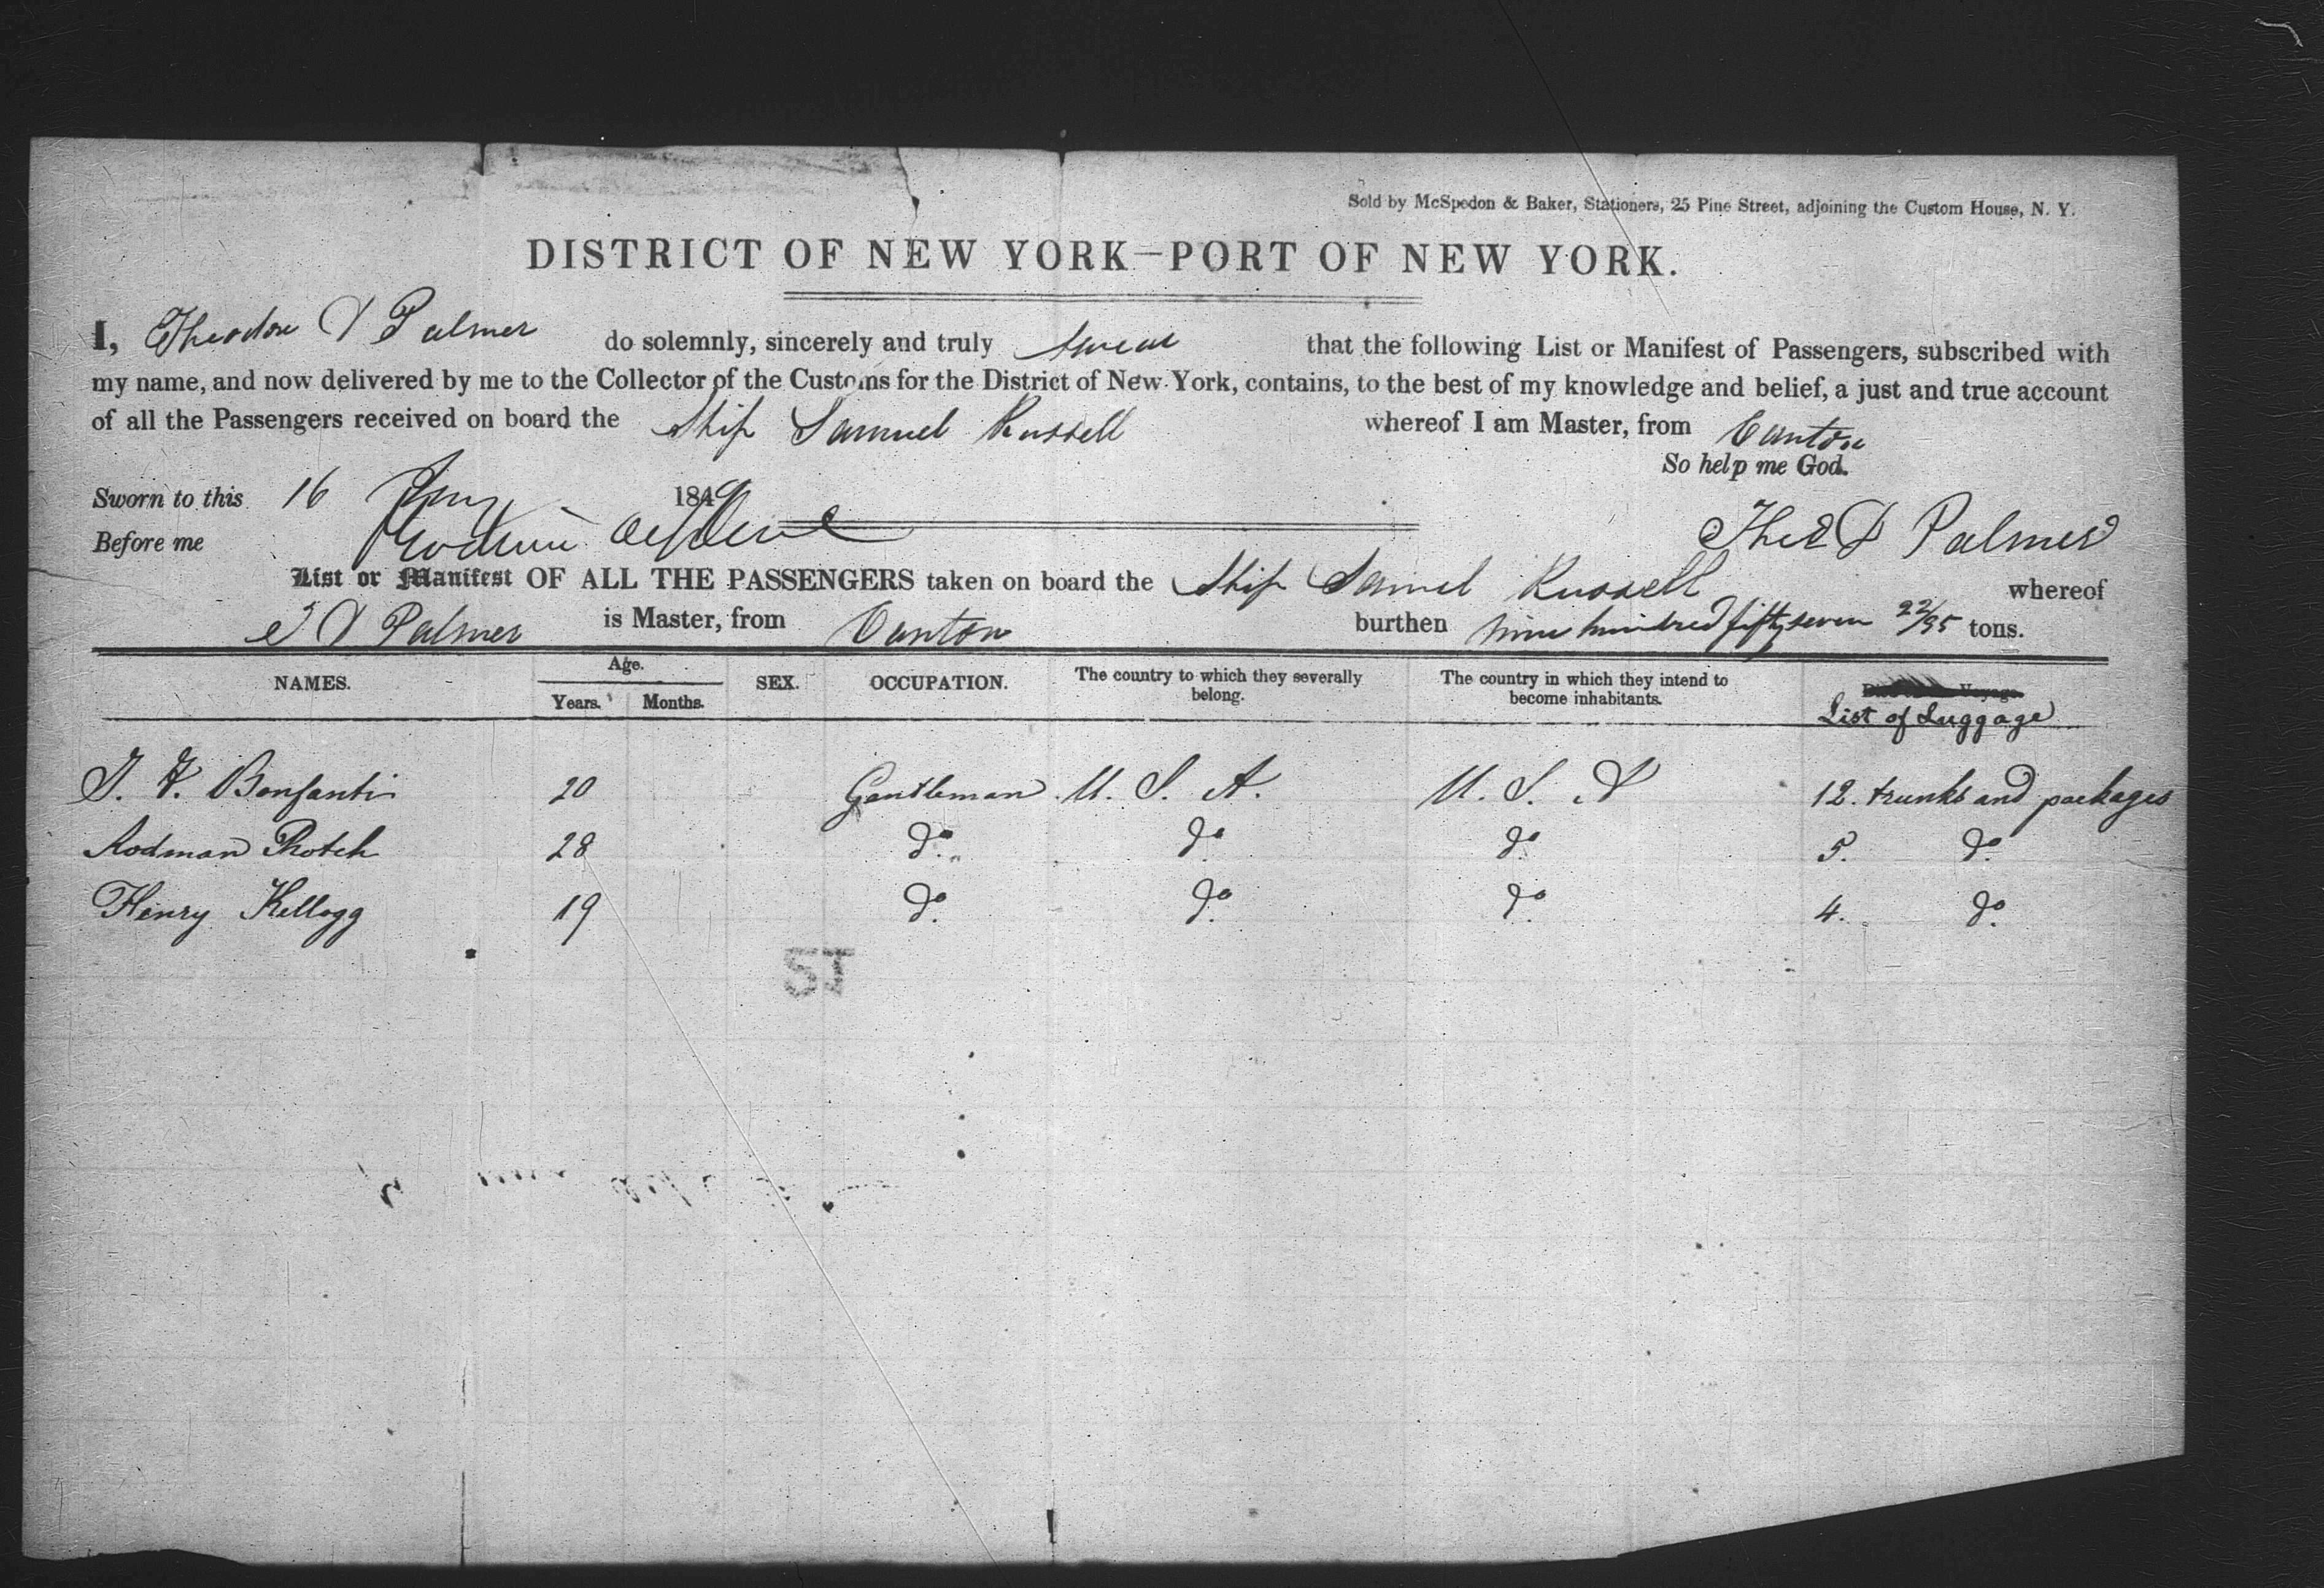 Sold by McSpedon & Baker, Stationers, 25 Pine Street, adjoining the Custom House, N. Y.
DISTRICT OF NEW YORK—PORT OF NEW YORK.
I, Theodore D Palmer do solemnly, sincerely and truly swear that the following List or Manifest of Passengers, subscribed with
my name, and now delivered by me to the Collector of the Customs for the District of New York, contains, to the best of my knowledge and belief, a just and true account
of all the Passengers received on board the Ship Samuel Russell whereof I am Master, from Canton
So help me God.
Sworn to this 16 1849
Before me Theo D Palmer
List or Manifest OF ALL THE PASSENGERS taken on board the Ship Samuel Russell whereof
T D Palmer is Master, from Canton burthen nine hundred fifty seven 22/95 tons.
NAMES. Age. Years. Months. SEX. OCCUPATION. The country to which they severally belong. The country in which they intend to become inhabitants. List of Luggage
J. F. Bonfanti 20 Gentleman U. S. A. U. S. A 12. trunks and packages
Rodman Rotch 28 do. do. do. 5. do.
Henry Kellogg 19 do. do. do. 4. do.